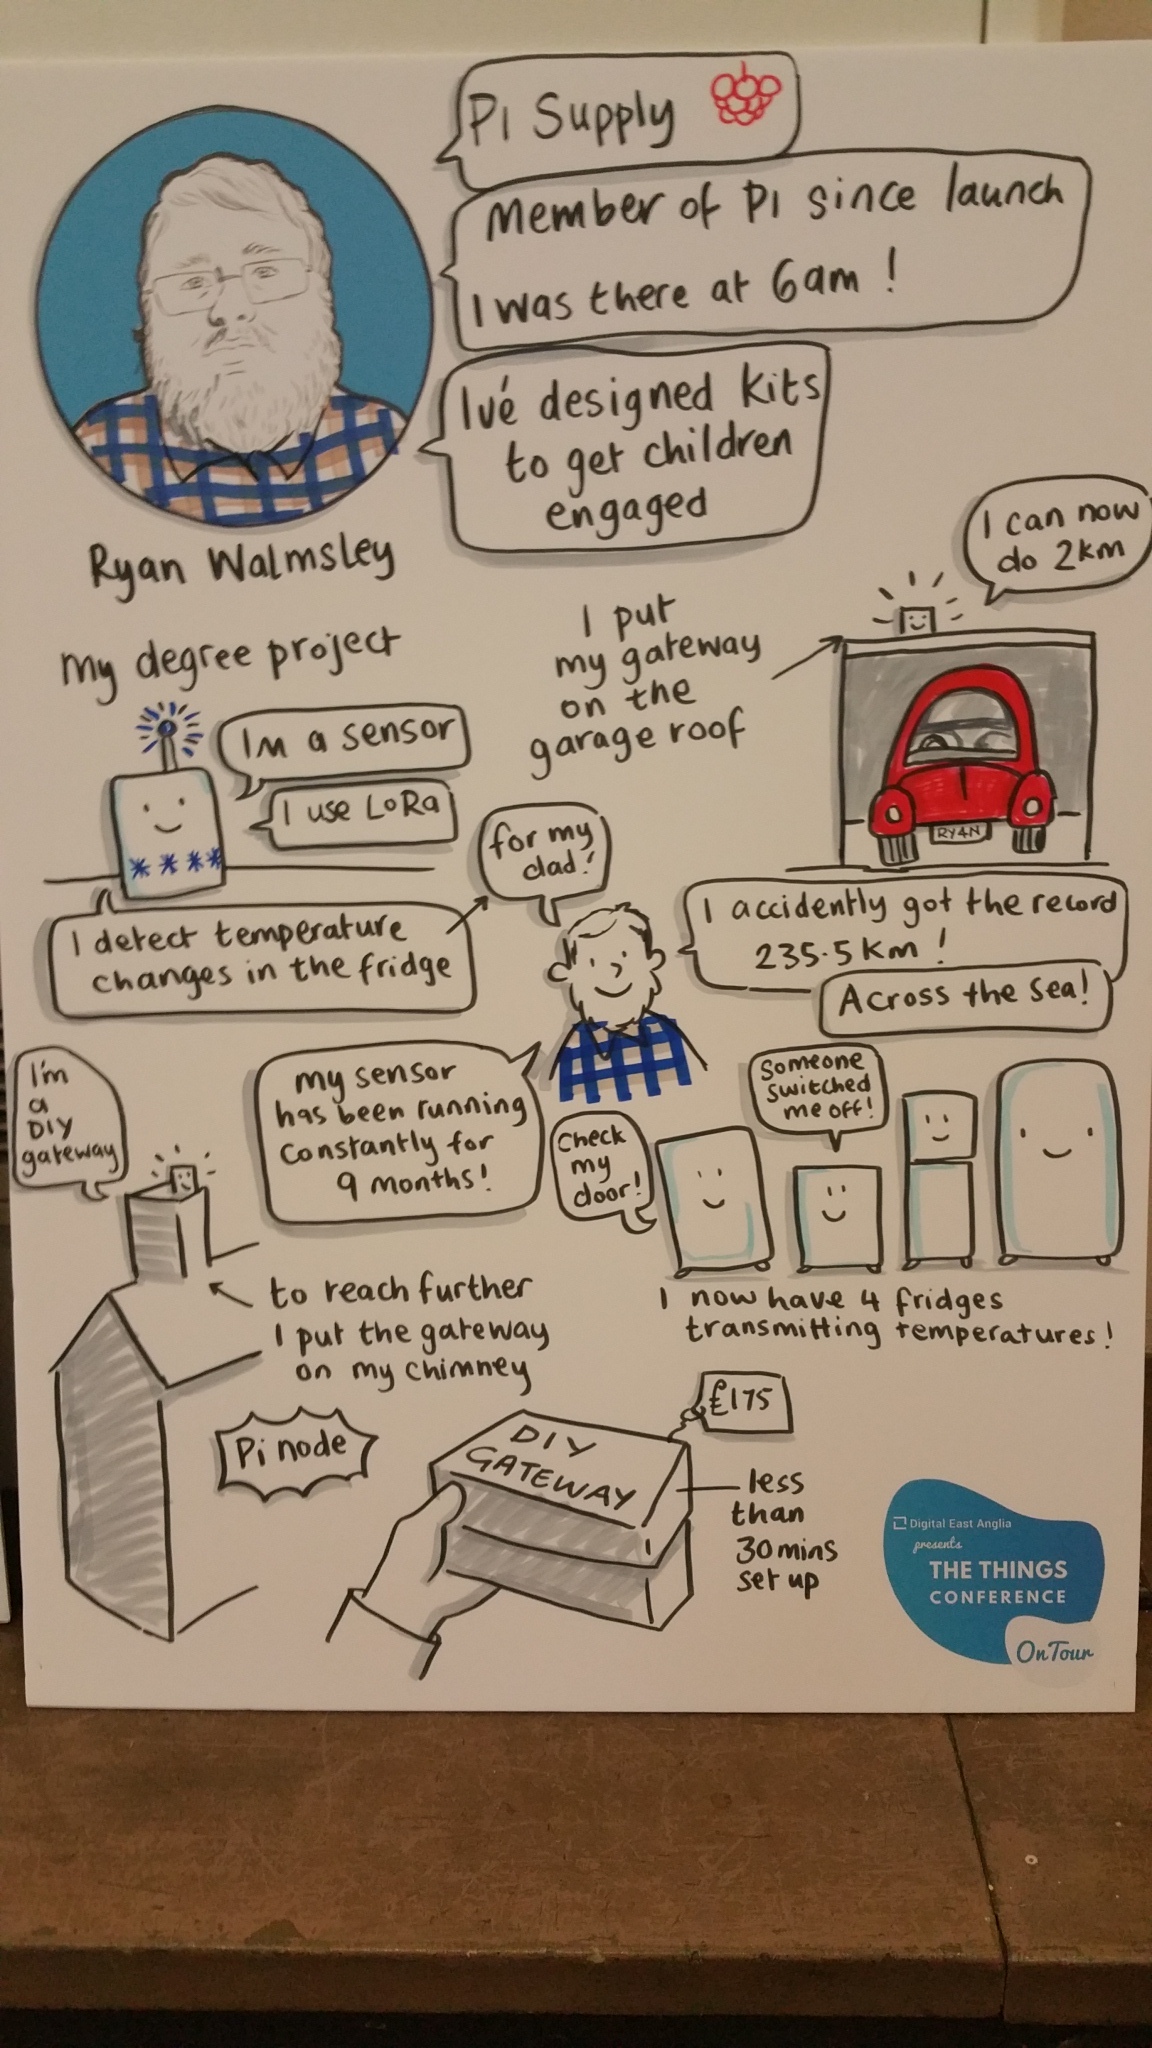 Pi Supply
Member of Pi since launch
I was there at 6am!
Ivé designed kits
to get children
engaged
Ryan Walmsley
I can now
do 2km
My degree project
I put
my gateway
on the
garage roof
I'm a sensor
I use LoRa
RY4N
for my
dad!
I detect temperature
changes in the fridge
I accidently got the record
235.5km!
Across the sea!
I'm
a
DIY
gateway
my sensor
has been running
constantly for
9 months!
Someone
switched
me off!
Check
my
door!
to reach further
I put the gateway
on my chimney
I now have 4 fridges
transmitting temperatures!
Pi node
DIY
GATEWAY
£175
less
than
30mins
set up
Digital East Anglia
presents
THE THINGS
CONFERENCE
On Tour